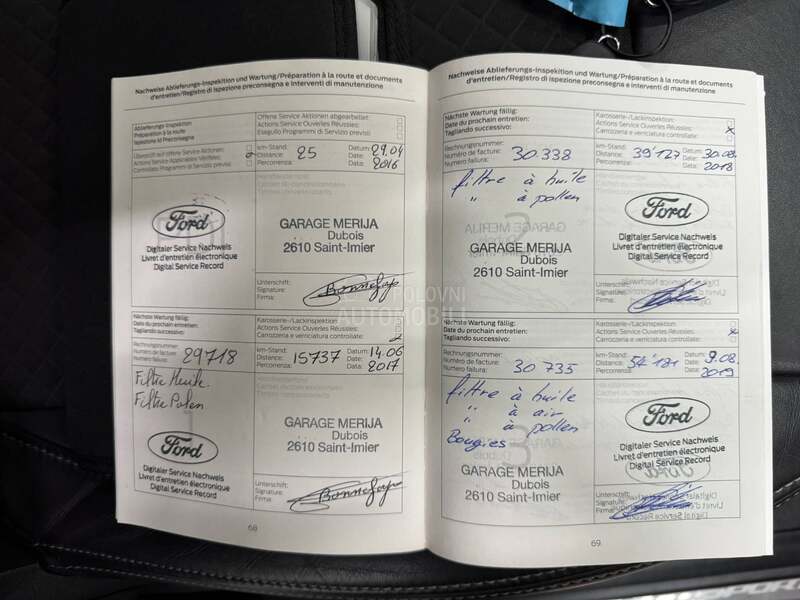 Nachweise Ablieferungs-Inspektion und Wartung/Préparation à la route et documents
d'entretien/Registro di ispezione preconsegna e interventi di manutenzione
Ablieferungs Inspektion
Préparation à la route
Ispezione di Preconsegna
Offene Service Aktionen abgearbeitet:
Actions Service Ouvertes Réussies:
Eseguito Programmi di Servizio previsti
Überprüft auf offene Service Aktionen:
Actions Service Applicables Vérifiées:
Controllato Programmi di Servizio previsti
km-Stand:
Distance:
Percorrenza:
25
Datum:
Date:
Data:
29.04
2016
Ford
Digitaler Service Nachweis
Livret d'entretien électronique
Digital Service Record
GARAGE MERIJA
Dubois
2610 Saint-Imier
Unterschrift:
Signature:
Firma:
Nächste Wartung fällig:
Date du prochain entretien:
Tagliando successivo:
Karosserie-/Lackinspektion:
Actions Service Ouvertes Réussies:
Carrozzeria e verniciatura controllate:
Rechnungsnummer:
Numéro de facture:
Numero fattura:
29718
km-Stand:
Distance:
Percorrenza:
15737
Datum:
Date:
Data:
14.06
2017
Filtre Huile
Filtre Polen
Ford
Digitaler Service Nachweis
Livret d'entretien électronique
Digital Service Record
GARAGE MERIJA
Dubois
2610 Saint-Imier
Unterschrift:
Signature:
Firma:
68
Nachweise Ablieferungs-Inspektion und Wartung/Préparation à la route et documents
d'entretien/Registro di ispezione preconsegna e interventi di manutenzione
Nächste Wartung fällig:
Date du prochain entretien:
Tagliando successivo:
Karosserie-/Lackinspektion:
Actions Service Ouvertes Réussies:
Carrozzeria e verniciatura controllate:
x
Rechnungsnummer:
Numéro de facture:
Numero fattura:
30 338
km-Stand:
Distance:
Percorrenza:
39'127
Datum:
Date:
Data:
30.08
2018
filtre à huile
" à pollen
GARAGE MERIJA
Dubois
2610 Saint-Imier
Ford
Digitaler Service Nachweis
Livret d'entretien électronique
Digital Service Record
Unterschrift:
Signature:
Firma:
Nächste Wartung fällig:
Date du prochain entretien:
Tagliando successivo:
Karosserie-/Lackinspektion:
Actions Service Ouvertes Réussies:
Carrozzeria e verniciatura controllate:
x
Rechnungsnummer:
Numéro de facture:
Numero fattura:
30 735
km-Stand:
Distance:
Percorrenza:
54'121
Datum:
Date:
Data:
9.08.
2019
filtre à huile
" à air
" à pollen
Bougies
GARAGE MERIJA
Dubois
2610 Saint-Imier
Ford
Digitaler Service Nachweis
Livret d'entretien électronique
Digital Service Record
Unterschrift:
Signature:
Firma:
69
POLOVNI
AUTOMOBILI